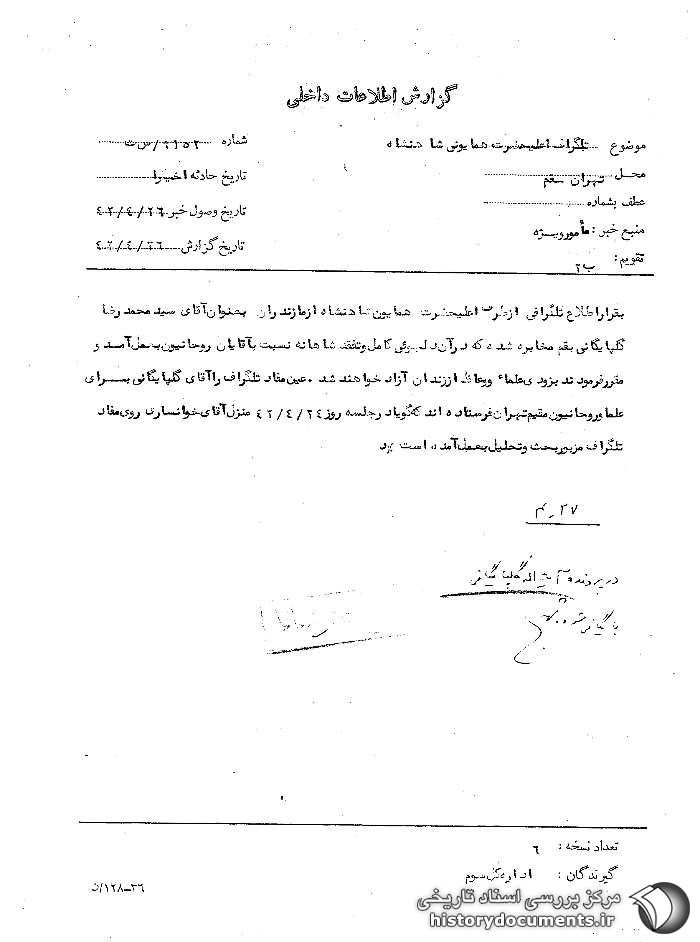 گزارش اطلاعات داخلی
موضوع تلگراف اعلیحضرت همایونی شاهنشاه
شماره ۲۱۵۲/س ت
محل تهران - قم
تاریخ حادثه اخیرا
عطف بشماره
تاریخ وصول خبر ۴۲/۴/۲۶
منبع خبر : مأمور ویژه
تاریخ گزارش ۴۲/۴/۲۶
تقویم : ب۲
بقرار اطلاع تلگرافی از طرف اعلیحضرت همایون شاهنشاه از مازندران بعنوان آقای سید محمد رضا
گلپایگانی بقم مخابره شده که در آن دلجوئی کامل و تفقد شاهانه نسبت بآقایان روحانیون بعمل آمد و
مقرر فرمودند بزودی علماء و وعاظ از زندان آزاد خواهند شد . عین مفاد تلگراف را آقای گلپایگانی برای
علما و روحانیون مقیم تهران فرستاده اند که گویا در جلسه روز ۴۲/۴/۲۴ منزل آقای خوانساری روی مفاد
تلگراف مزبور بحث و تحلیل بعمل آمده است
۲۷ ر ۴
در پرونده آیت اله گلپایگانی
بایگانی شود
تعداد نسخه : ۶
گیرندگان : اداره کل سوم
۳۶-۱۲۸/د
مرکز بررسی اسناد تاریخی
historydocuments.ir